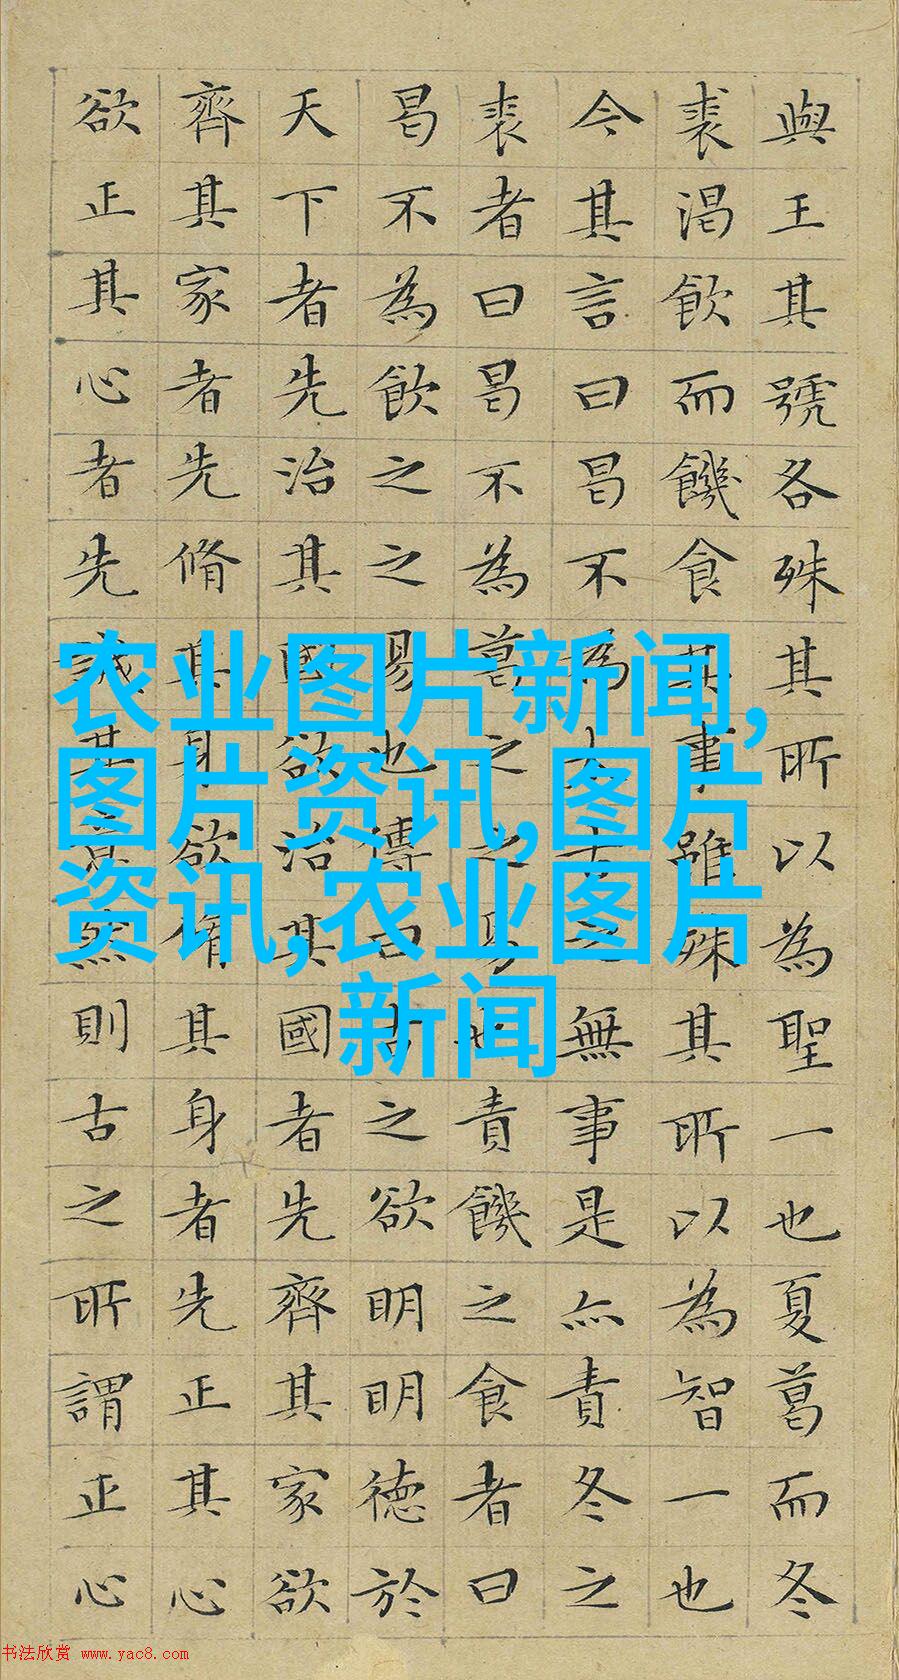 與王其號各殊其所以為聖一也夏葛而冬
裘渴飲而饑食其事雖殊其所以為智一也
今其言曰曷不為太古之無事是亦責冬之
裘者曰曷不為葛之之易也責饑之食者曰
曷不為飲之之易也傳曰古之欲明明德於
天下者先治其國欲治其國者先齊其家欲
齊其家者先脩其身欲脩其身者先正其心
欲正其心者先誠其意然則古之所謂正心
农业图片新闻,
图片资讯,图片
资讯,农业图片
新闻
书法欣赏 www.yac8.com